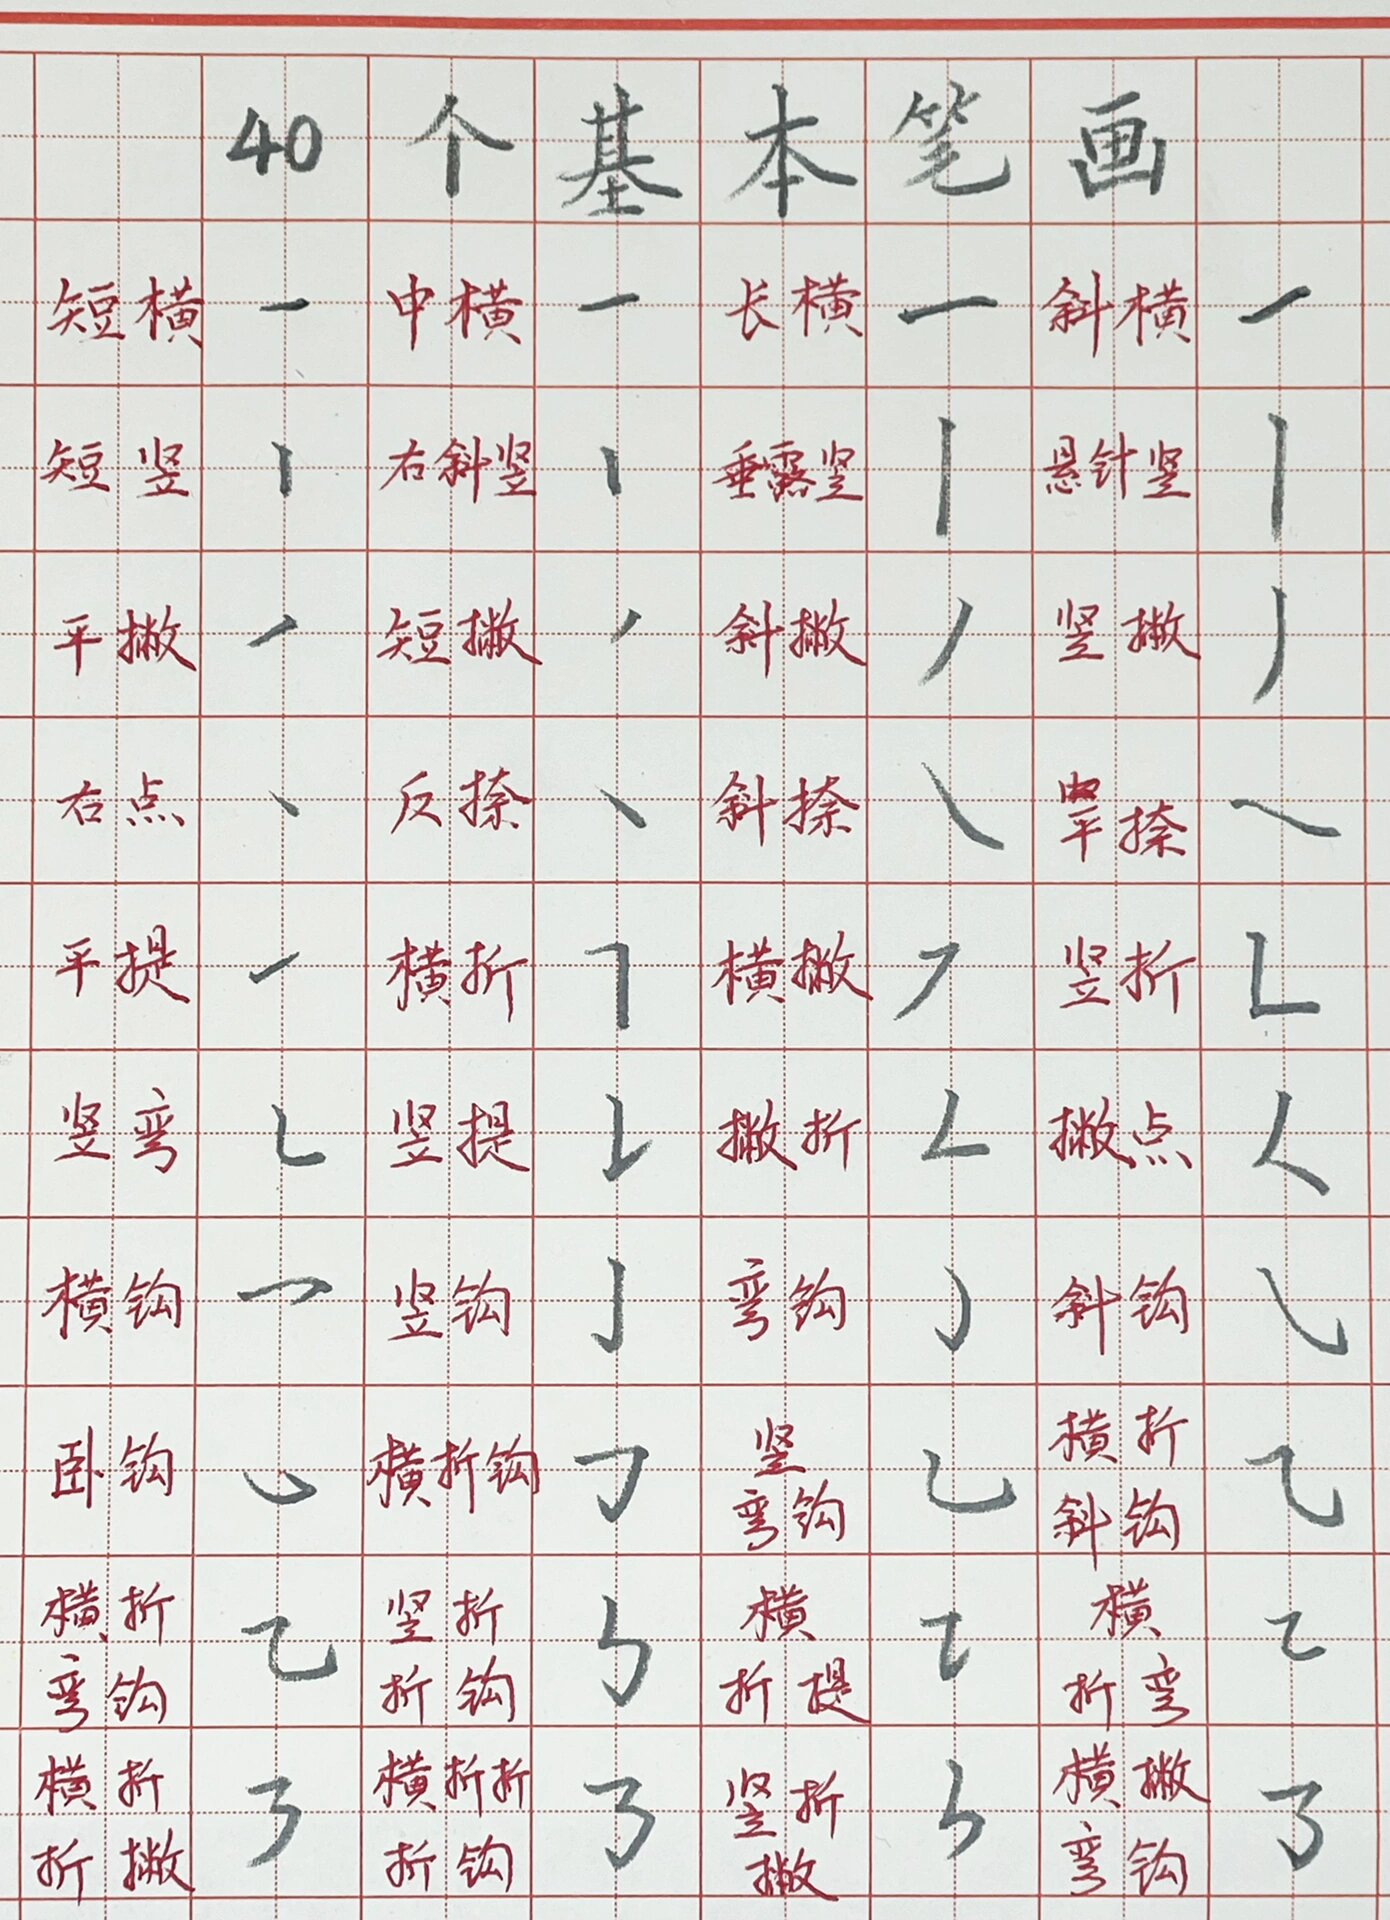 40个基本笔画
短横 中横 长横 斜横
短竖 右斜竖 垂露竖 悬针竖
平撇 短撇 斜撇 竖撇
右点 反捺 斜捺 平捺
平提 横折 横撇 竖折
竖弯 竖提 撇折 撇点
横钩 竖钩 弯钩 斜钩
卧钩 横折钩 竖弯钩 横折斜钩
横折弯钩 竖折折钩 横折提 横折弯
横折折撇 横折折折钩 竖折撇 横撇弯钩